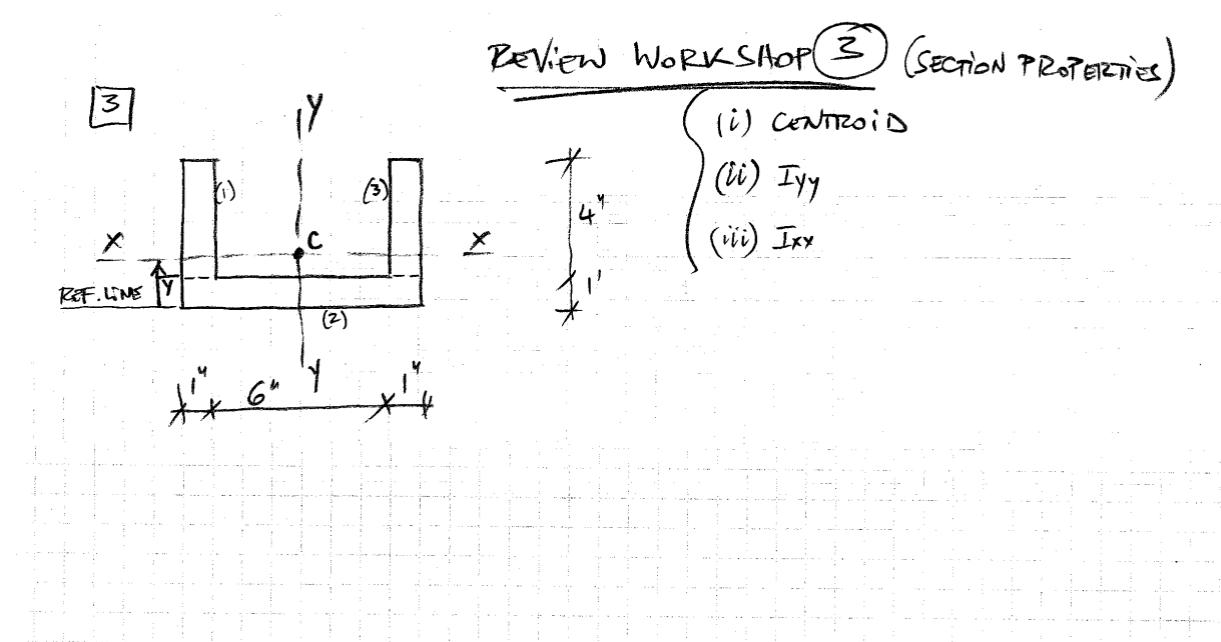 REVIEW WORKSHOP 3 (SECTION PROPERTIES)
3
Y
(i) CENTROID
(1)
(3)
4"
(ii) Iyy
X
C
X
(iii) Ixx
REF. LINE
Y
1'
(2)
1"
6"
Y
1"